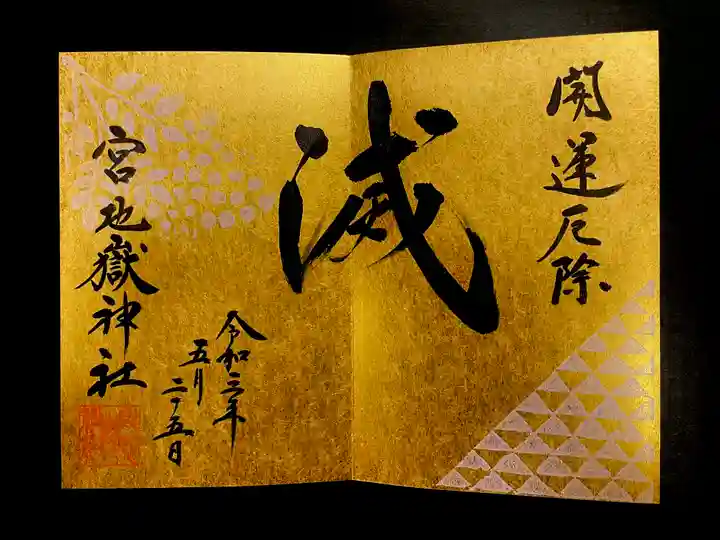 開運厄除
滅
令和三年
五月
二十五日
宮地嶽神社